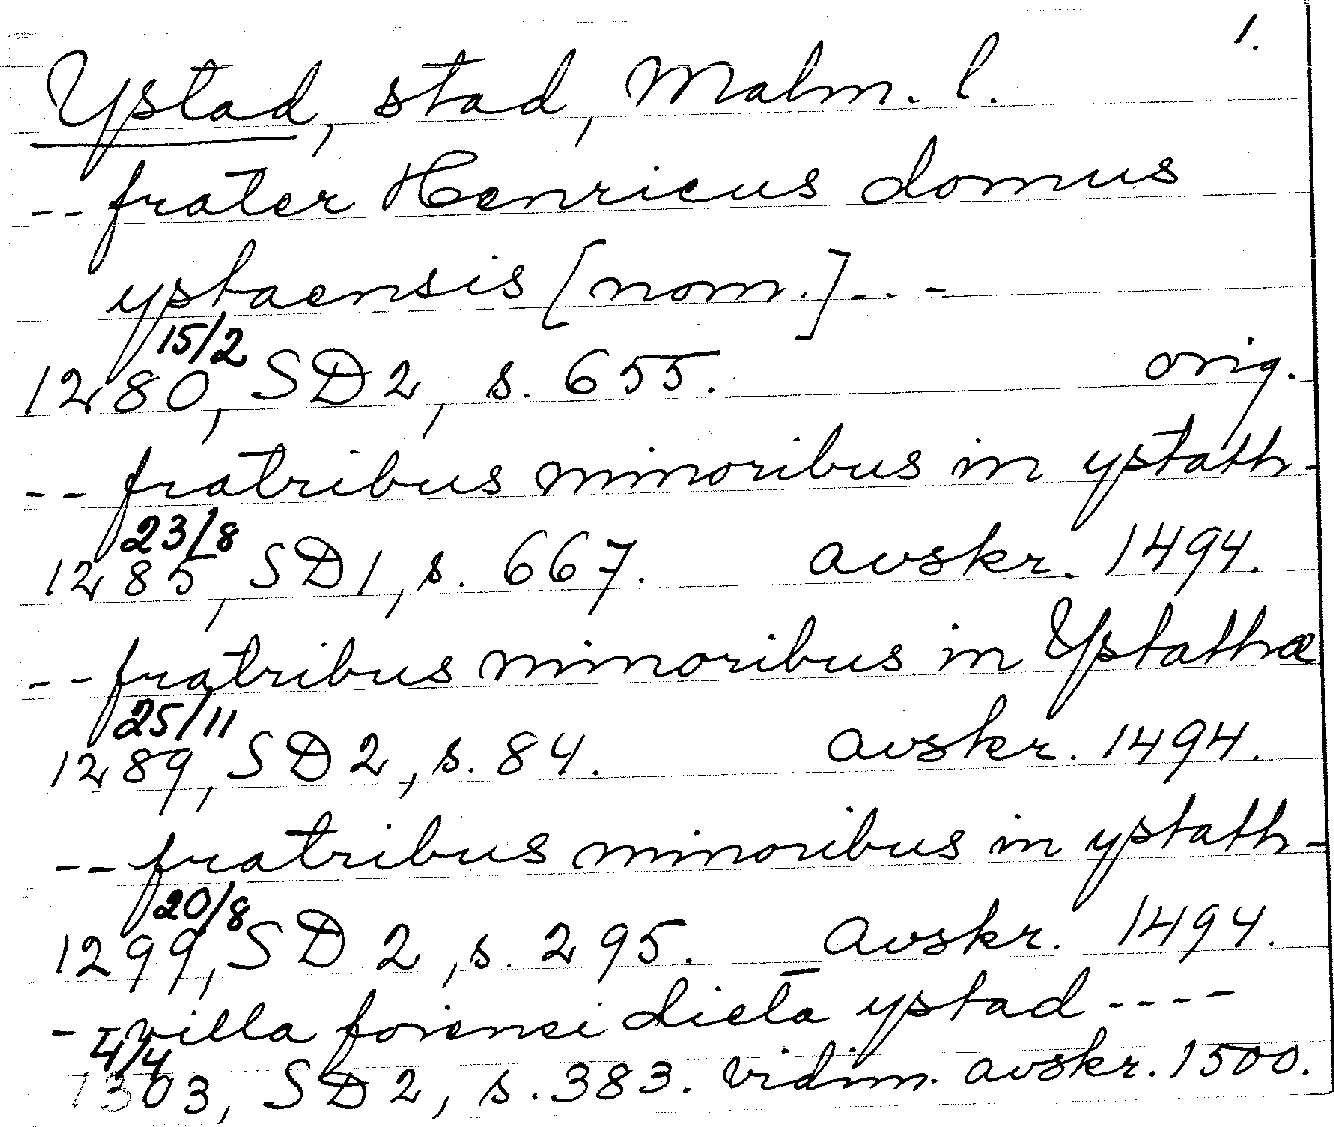 1.
Ystad, stad, Malm. l.
-- frater Henricus domus
ystaensis [nom.] ---
1280 15/2, SD 2, s. 655. orig.
-- fratribus minoribus in ystath-
1285 23/8, SD 1, s. 667. avskr. 1494.
-- fratribus minoribus in Ystathæ
1289 25/11, SD 2, s. 84. avskr. 1494.
-- fratribus minoribus in ystath-
1299 20/8, SD 2, s. 295. avskr. 1494.
-- villa forensi dicta ystad ----
1303 4/4, SD 2, s. 383. vidim. avskr. 1500.